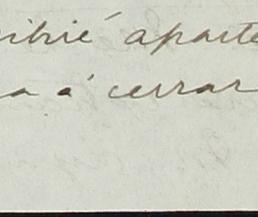 cibié aparte
a á cerrar